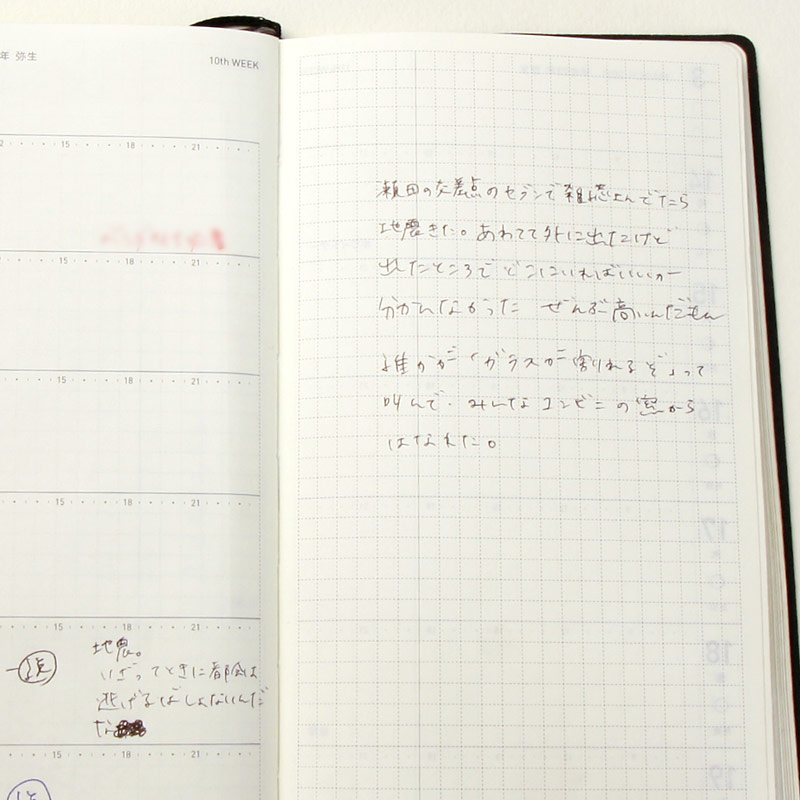 年 弥生
10th WEEK
15 18 21
15 18 21
15 18 21
15 18 21
15 18 21
地震。
いざってときに都会は
逃げるばしょないんだ
な
15 18 21
瀬田の交差点のセブンで雑誌よんでたら
地震きた。あわてて外に出たけど
出たところでどこにいればいいか
分かんなかった ぜんぶ高いんだもん
誰かが「ガラスが割れるぞ」って
叫んで、みんなコンビニの窓から
はなれた。
16
17
18
19